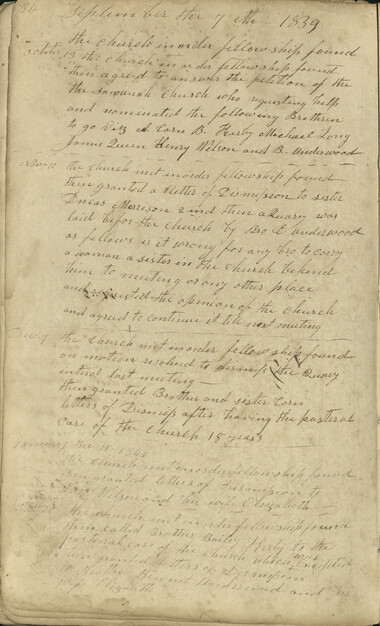 September the 7th 1839
the Church in order fellowship found
October 13 the Church in order fellowship found
then agreed to answer the petition of the
the Savanah Church who requsting help
and nominated the following Brethren
to go Viz A Corn B. Kerby Michael Long
James Queen Henry Wilson and B. Underwood
the Church met in order fellowship found
then granted a Letter of Dismission to sister
Dorcas Morrison 2 ind then a Quary was
laid befor the Church by Bro E Underwood
as follows is it wrong for any bro to carry
a woman a sister in the Church behind
him to meeting or any other place
and the opinion of the Church
and agreed to continue it till next meeting
the Church met in order fellowship found
on motion resolved to dismiss the Quary
entred last meeting —
then granted Brother and sister Corn
letters of Dismiss after having the pastoral
Care of the Church 18 years
January the 11 1840
the Church met in order fellowship found
then granted letters of Dismission to
Wilson and his wife Elizabeth —
the Church met in order fellowship found
then called Brother Kerby to the
pastoral care of the Church which was Excepted
then granted letters of Dismission
Underwood and